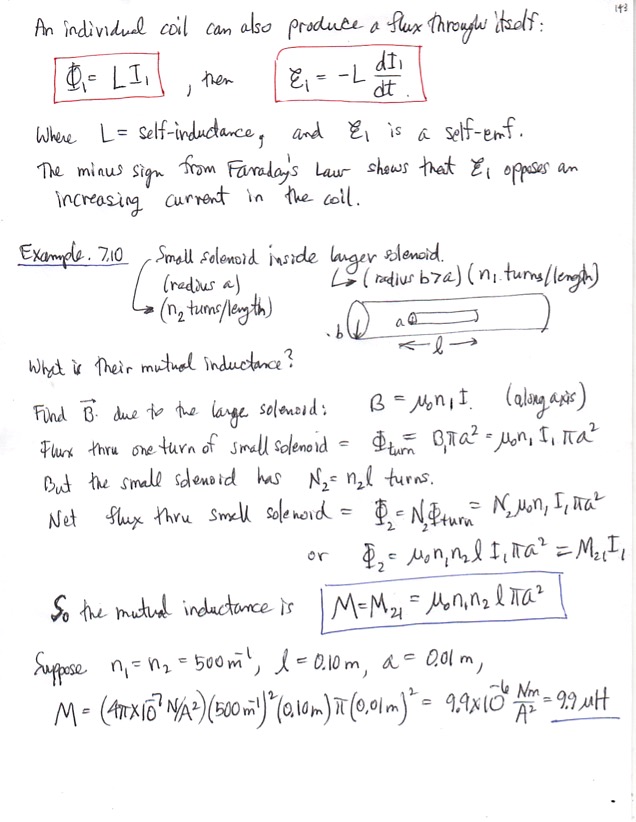 143
An individual coil can also produce a flux through itself:
Φ₁ = L I₁ , then ℰ₁ = -L dI₁/dt.
Where L = self-inductance, and ℰ₁ is a self-emf.
The minus sign from Faraday's Law shows that ℰ₁ opposes an
increasing current in the coil.
Example. 7.10 Small solenoid inside larger solenoid.
(radius a) ↳ (radius b>a) (n₁ turns/length)
↳ (n₂ turns/length)
b a
← l →
What is their mutual inductance?
Find B⃗ due to the large solenoid: B = μ₀n₁I. (along axis)
Flux thru one turn of small solenoid = Φturn = B₁πa² = μ₀n₁ I₁ πa²
But the small solenoid has N₂ = n₂l turns.
Net flux thru small solenoid = Φ₂ = N₂Φturn = N₂μ₀n₁ I₁πa²
or Φ₂ = μ₀n₁n₂l I₁πa² = M₂₁I₁
So the mutual inductance is M = M₂₁ = μ₀n₁n₂ l πa²
Suppose n₁ = n₂ = 500 m⁻¹, l = 0.10 m, a = 0.01 m,
M = (4π×10⁻⁷ N/A²)(500 m⁻¹)²(0.10m) π(0.01m)² = 9.9×10⁻⁶ Nm/A² = 9.9 μH